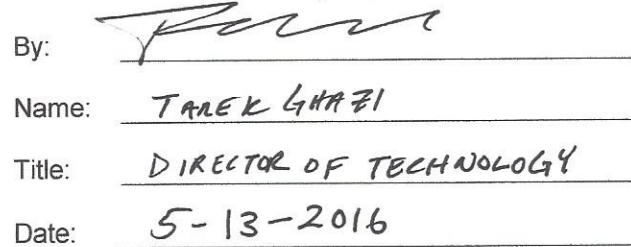 By:
Name: TAREK GHAZI
Title: DIRECTOR OF TECHNOLOGY
Date: 5-13-2016